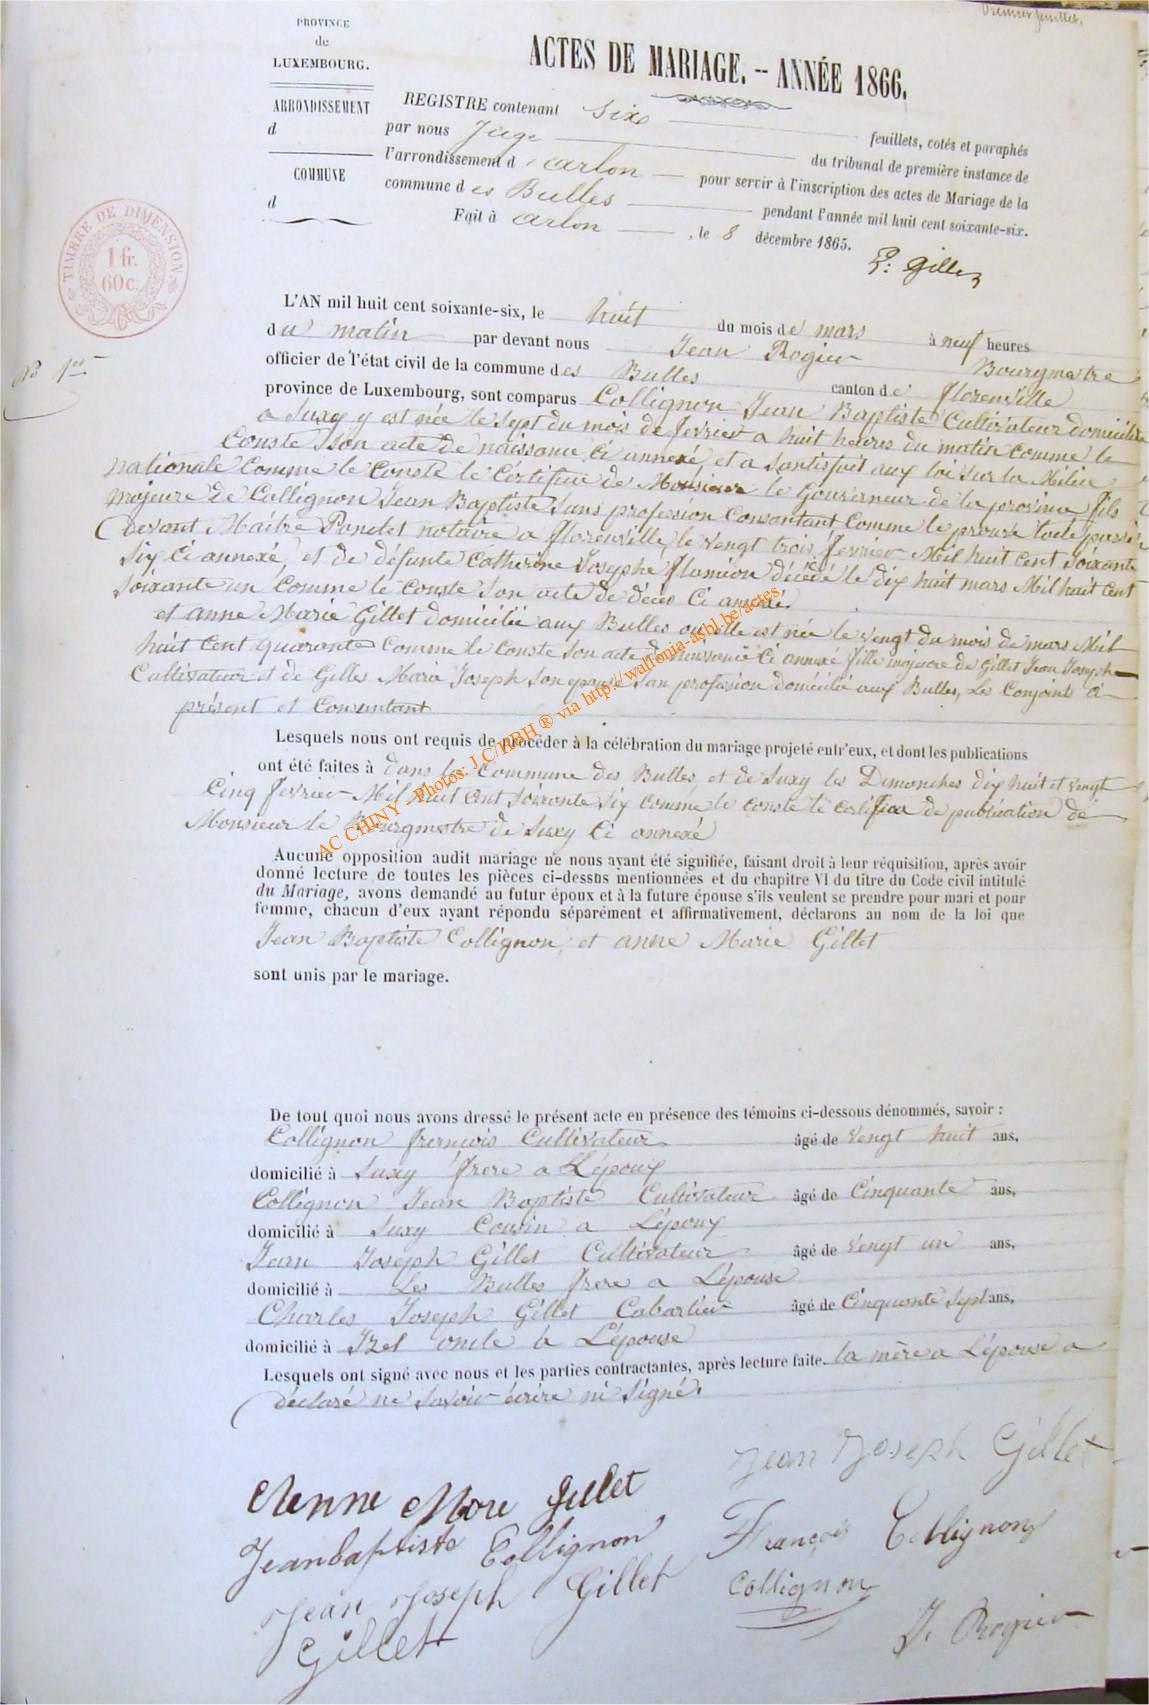 Premier feuillet.
PROVINCE
de
LUXEMBOURG.
ARRONDISSEMENT
d
COMMUNE
d
TIMBRE DE DIMENSION
1 fr.
60 c.
ACTES DE MARIAGE. -- ANNÉE 1866.
REGISTRE contenant six feuillets, cotés et paraphés
par nous Juge du tribunal de première instance de
l'arrondissement d'arlon pour servir à l'inscription des actes de Mariage de la
commune des Bulles pendant l'année mil huit cent soixante-six.
Fait à arlon, le 8 décembre 1865.
No 1er
L'AN mil huit cent soixante-six, le huit du mois de mars à neuf heures
du matin par devant nous Jean Rogier Bourgmestre
officier de l'état civil de la commune des Bulles canton de florenville
province de Luxembourg, sont comparus Collignon Jean Baptiste Cultivateur domicilié
a Suxy y est née le Sept du mois de fevrier a huit heures du matin comme le
Conste Son acte de naissance ci annexé, et a Santisfait aux loi Sur la Milice
nationale Comme le Conste le Certificat de Monsieur le Gouverneur de la province fils
majeure de Collignon Jean Baptiste Sans profession Consantant Comme le prouve
devant Maître notaire a florenville le vengt trois fevrier Mil huit cent Soixante
Six Ci annexé, et de défunte Catherine Josephe flamion décédé le dix huit mars Mil huit cent
Soixante un Comme le Conste Son acte de décès Ci annexé.
et anne Marie Gillet domicilié aux Bulles ou elle est née le vengt du mois de mars Mil
huit cent quarante Comme le Conste Son acte de naissance Ci annexé fille majeure de Gillet Jean Joseph
Cultivateur et de Gilles Marie Joseph Son epouse San profession domicilié aux Bulles, Les Conjoint a
présent et Consentant
Lesquels nous ont requis de procéder à la célébration du mariage projeté entr'eux, et dont les publications
ont été faites à dans les Commune des Bulles et de Suxy les Dimanches dix huit et vengt
Cinq fevrier Mil huit cent soixante six comme le conste le certificat de publication de
Monsieur le Bourgmestre de Suxy Ci annexé
AC CHINY - Photos: J.C/HBH ® via http://wallonia-asbl.be/actes
Aucune opposition audit mariage ne nous ayant été signifiée, faisant droit à leur réquisition, après avoir
donné lecture de toutes les pièces ci-dessus mentionnées et du chapitre VI du titre du Code civil intitulé
du Mariage, avons demandé au futur époux et à la future épouse s'ils veulent se prendre pour mari et pour
femme, chacun d'eux ayant répondu séparément et affirmativement, déclarons au nom de la loi que
Jean Baptiste Collignon, et anne Marie Gillet
sont unis par le mariage.
De tout quoi nous avons dressé le présent acte en présence des témoins ci-dessous dénommés, savoir :
Collignon françois Cultivateur âgé de vengt huit ans,
domicilié à Suxy frere a L'époux
Collignon Jean Baptiste Cultivateur âgé de Cinquante ans,
domicilié à Suxy Cousin a L'époux
Jean Joseph Gillet Cultivateur âgé de vengt un ans,
domicilié à Les Bulles frere a L'épouse
Charles Joseph Gillet Cabartier âgé de Cinquante Sept ans,
domicilié à Izel oncle à L'épouse
Lesquels ont signé avec nous et les parties contractantes, après lecture faite. la mère a L'épouse a
déclaré ne Savoir écrire ni Signé.
Jean Joseph Gillet
Gillet
Jeanbaptiste Collignon
François Collignon
Jean Joseph Gillet
Collignon
Gillet
J. Rogier